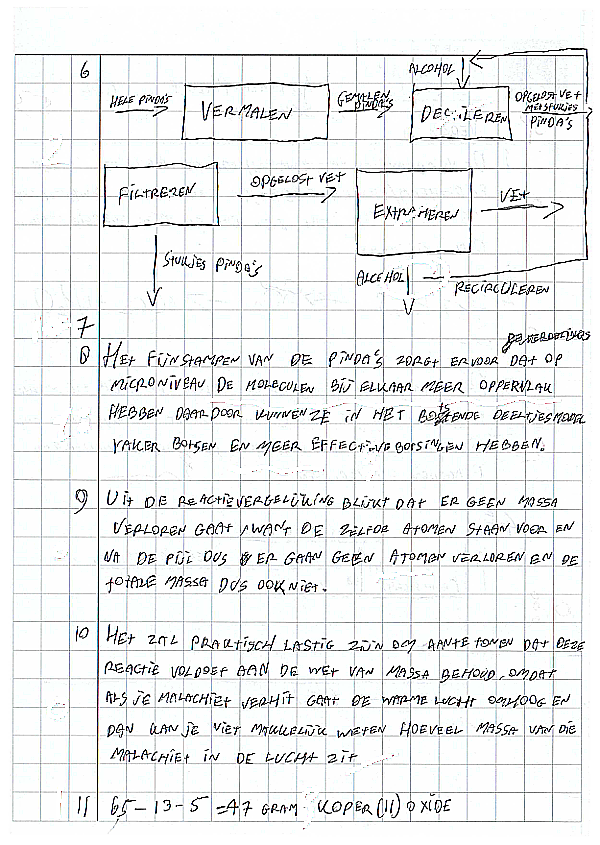 6
HELE PINDA'S
VERMALEN
GEMALEN PINDA'S
ALCOHOL
OPGELOST VET
PINDA'S
FILTREREN
OPGELOST VET
EXTRAHEREN
VET
STUKJES PINDA'S
ALCEHOL
RECIRCULEREN
7
8 HET FIJNSTAMPEN VAN DE PINDA'S ZORGT ERVOOR DAT OP
MICRONIVEAU DE MOLECULEN BIJ ELKAAR MEER OPPERVLAK
HEBBEN DAARDOOR KUNNEN ZE IN HET BOTSENDE DEELTJESMODEL
VAKER BOTSEN EN MEER EFFECTIVE BOTSINGEN HEBBEN.
9 UIT DE REACTIEVERGELIJKING BLIJKT DAT ER GEEN MASSA
VERLOREN GAAT, WANT DE ZELFDE ATOMEN STAAN VOOR EN
NA DE PIJL DUS ER GAAN GEEN ATOMEN VERLOREN EN DE
TOTALE MASSA DUS OOK NIET.
10 HET ZAL PRAKTISCH LASTIG ZIJN OM AANTETONEN DAT DEZE
REACTIE VOLDOET AAN DE WET VAN MASSA BEHOUD, OMDAT
ALS JE MALACHIET VERHIT GAAT DE WARME LUCHT OMHOOG EN
DAN KAN JE NIET MAKKELIJK WETEN HOEVEEL MASSA VAN DIE
MALACHIET IN DE LUCHT ZIT
11 65-13-5 = 47 GRAM KOPER(II)OXIDE